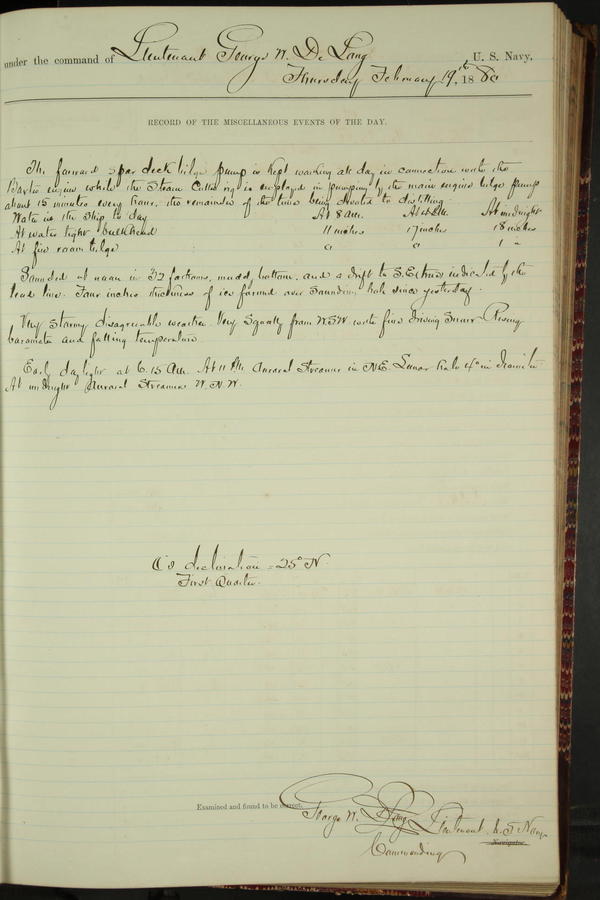 under the command of Lieutenant George W. De Long U. S. Navy,
Thursday February 19th, 1880
RECORD OF THE MISCELLANEOUS EVENTS OF THE DAY.
The forward spar deck bilge pump is kept working all day in connection with the
Baxter engine while the Steam Cutter rig is employed in pumping by the main engine bilge pump
about 15 minutes every hour, the remainder of the time being devoted to distilling.
Water in the Ship to day At 8 am. At 4 P.M. At midnight
At water tight bulkhead 11 inches 17 inches 18 inches
At fire room bilge 0 0 1 "
Sounded at noon in 32 fathoms, muddy bottom, and a drift to S.E. being indicated by the
lead line. Four inches thickness of ice formed over Sounding hole since yesterday.
Very stormy disagreeable weather. Very Squally from W.S.W. with fine driving Snow - Rising
barometer and falling temperature.
Early daylight at 6.15 am. At 11 P.M. Auroral Streamer in N.E. Lunar halo 4° in diameter
At midnight Auroral Streamer W.N.W.
☾'s declination = 25° N.
First Quarter.
Examined and found to be correct.
George W. De Long Lieutenant U.S. Navy
Navigator
Commanding